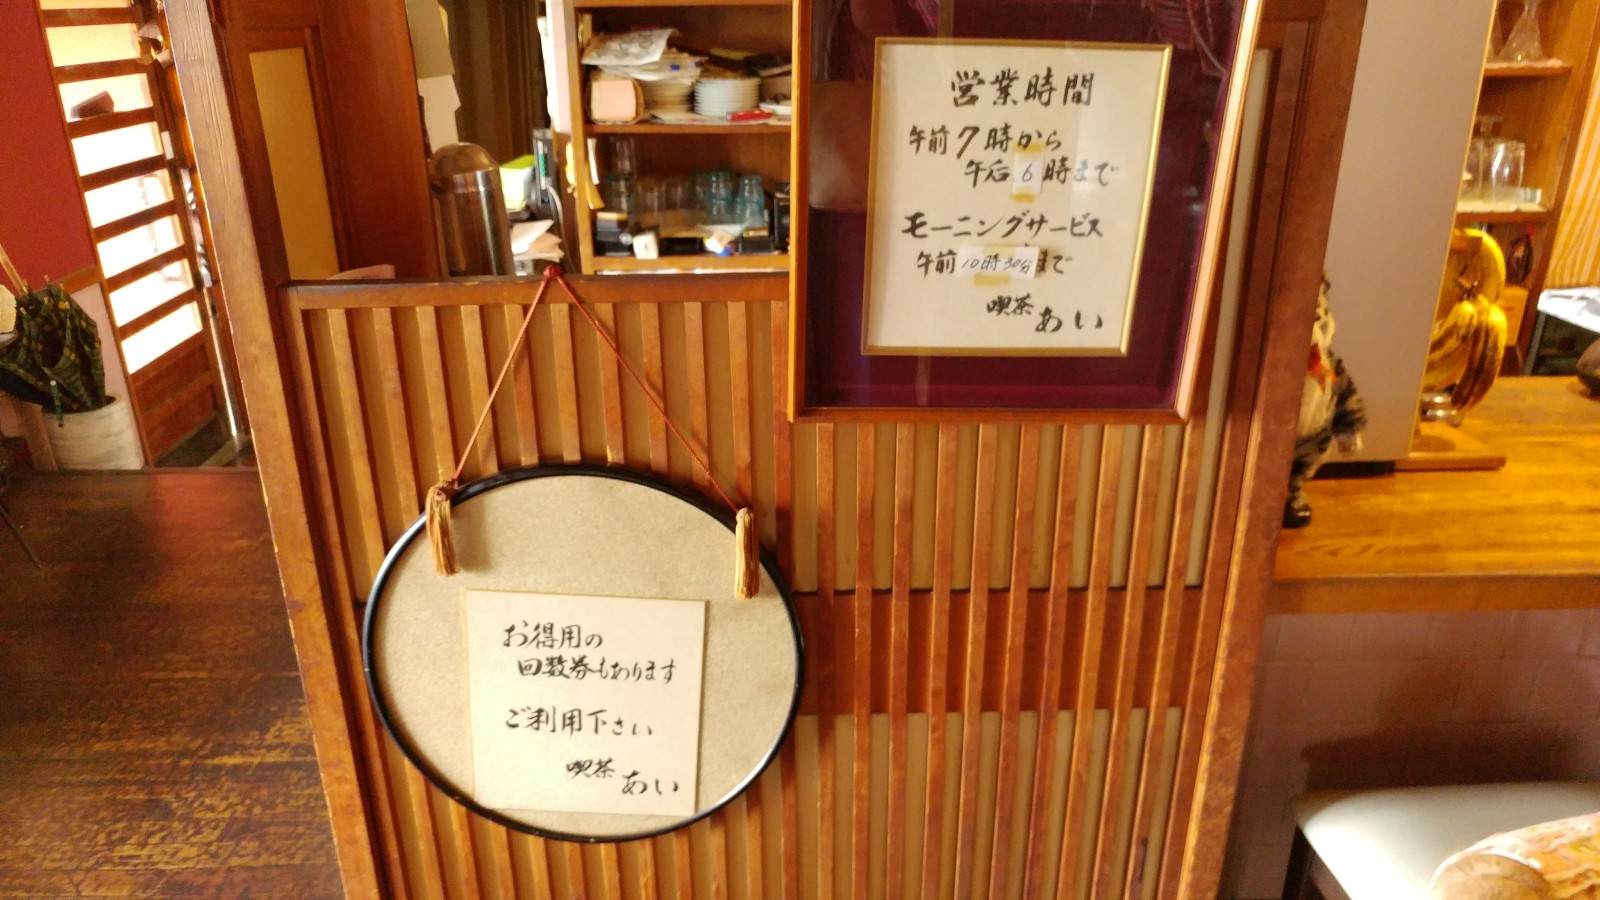 営業時間
午前7時から
午后6時まで
モーニングサービス
午前10時30分まで
喫茶 あい
お得用の
回数券もあります
ご利用下さい
喫茶 あい